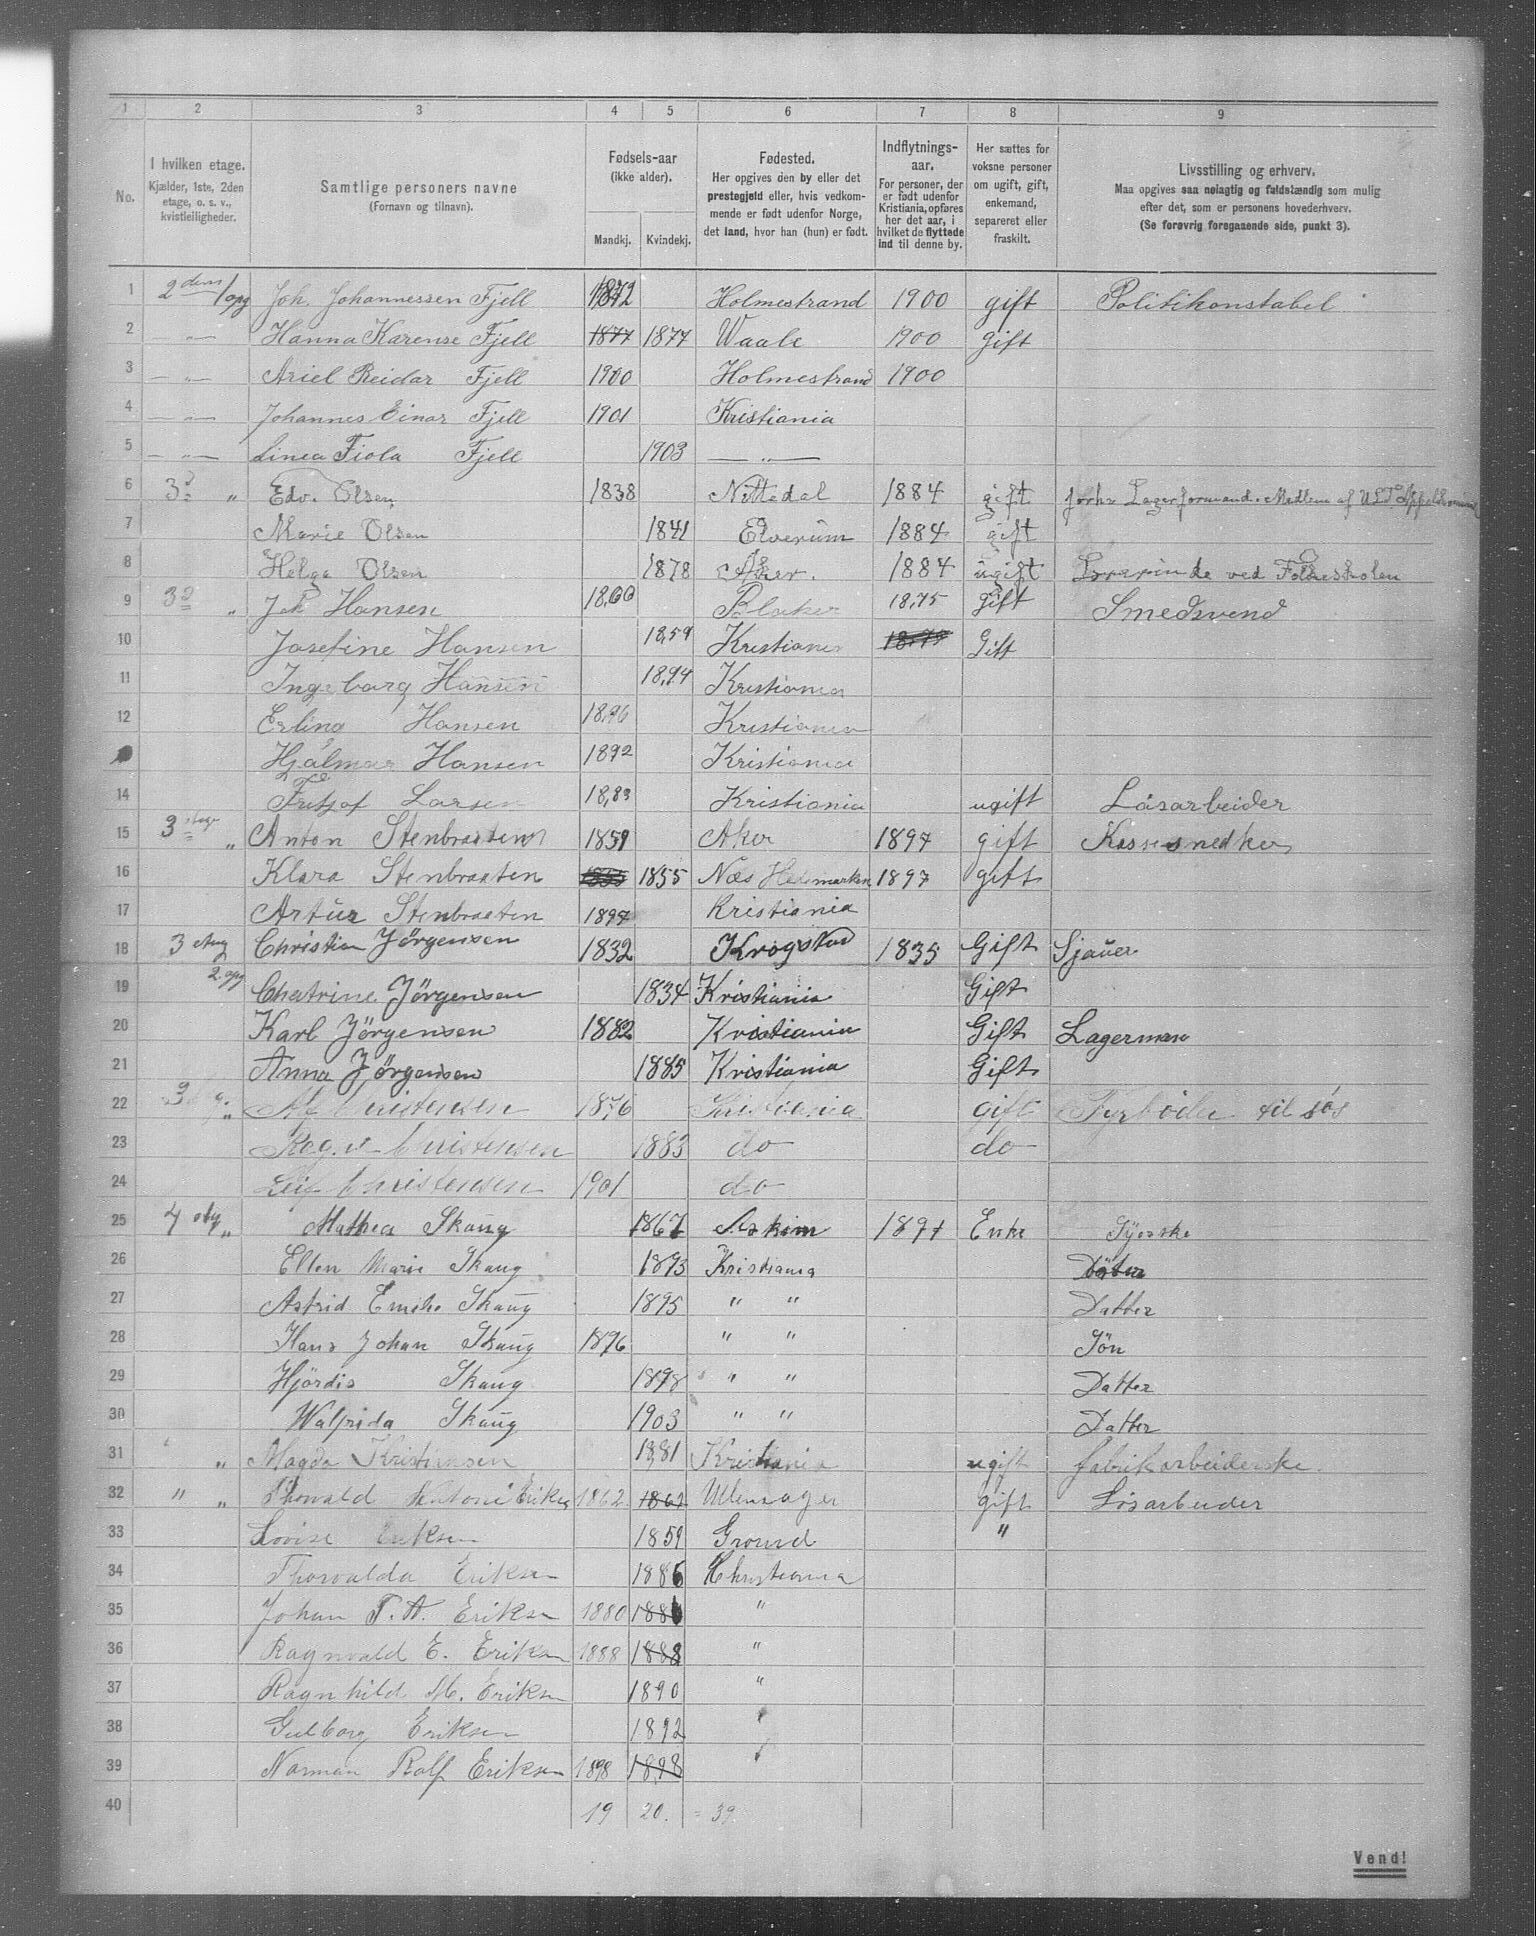 1 2 3 4 5 6 7 8 9
No.
I hvilken etage.
Kjælder, 1ste, 2den
etage, o. s. v.,
kvistleiligheder.
Samtlige personers navne
(Fornavn og tilnavn).
Fødsels-aar
(ikke alder).
Mandkj. Kvindekj.
Fødested.
Her opgives den by eller det
prestegjeld eller, hvis vedkom-
mende er født udenfor Norge,
det land, hvor han (hun) er født.
Indflytnings-
aar.
For personer, der
er født udenfor
Kristiania, opføres
her det aar, i
hvilket de flyttede
ind til denne by.
Her sættes for
voksne personer
om ugift, gift,
enkemand,
separeret eller
fraskilt.
Livsstilling og erhverv.
Maa opgives saa nøiagtig og fuldstændig som mulig
efter det, som er personens hovederhverv.
(Se forøvrig foregaaende side, punkt 3).
1 2den /opg Joh. Johannessen Fjell 1872 Holmestrand 1900 gift Politikonstabel
2 — „ — Hanna Karense Fjell 1877 1877 Waale 1900 gift
3 — „ — Ariel Reidar Fjell 1900 Holmestrand 1900
4 — „ — Johannes Einar Fjell 1901 Kristiania
5 — „ — Linea Fiola Fjell 1903 — „ —
6 3d „ Edv. Olsen 1838 Nittedal 1884 gift forh. Lagerformand. Medlem af
7 Marie Olsen 1841 Elverum 1884 gift
8 Helga Olsen 1878 Aker. 1884 ugift Lærerinde ved Folkeskolen
9 3d „ Joh Hansen 1860 Blaker 1875 gift Smedsvend
10 Josefine Hansen 1859 Kristiania 1879 Gift
11 Ingeborg Hansen 1894 Kristiania
12 Erling Hansen 1896 Kristiania
Hjalmar Hansen 1892 Kristiania
14 Fritjof Larsen 1883 Kristiania ugift Løsarbeider
15 3 etage „ Anton Stenbraaten 1859 Aker 1897 gift Kassesnedker
16 Klara Stenbraaten 1855 1855 Næs Hedemarken 1897 gift
17 Artur Stenbraaten 1897 Kristiania
18 3 etag Christian Jörgensen 1832 Krogstad 1835 Gift Sjauer
19 2. opg Chatrine Jörgensen 1834 Kristiania Gift
20 Karl Jörgensen 1882 Kristiania Gift Lagerman
21 Anna Jörgensen 1885 Kristiania Gift
22 3 „ Alf Christensen 1876 Kristiania gift Fyrbøder til søs
23 Ragn. Christensen 1883 do do
24 Leif Christensen 1901 do
25 4 etg „ Mathea Skaug 1867 Askim 1897 Enke Syerske
26 Ellen Marie Skaug 1893 Kristiania Datter
27 Astrid Emilie Skaug 1895 " " Datter
28 Hans Johan Skaug 1896 " " Sön
29 Hjördis Skaug 1898 " " Datter
30 Walfrida Skaug 1903 " " Datter
31 „ Magda Kristiansen 1881 Kristiania ugift fabrikarbeiderske.
32 " „ Thorvald Antoni Eriksen 1862 1862 Ullensager gift Løsarbeider
33 Lovise Eriksen 1859 Gromd "
34 Thorvalda Eriksen 1886 Christiania
35 Johan T. A. Eriksen 1880 1880 "
36 Ragnvald E. Eriksen 1888 1888 "
37 Ragnhild M. Eriksen 1890 "
38 Gulborg Eriksen 1892 "
39 Norman Rolf Eriksen 1898 1898 "
40 19 20. = 39
Vend!